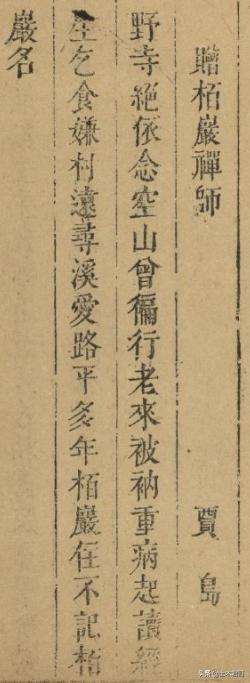 贈栢巖禪師 賈島
野寺絶依念空山曾徧行老來被衲重病起讀經
生乞食嫌村遠尋溪愛路平多年栢巖住不記栢
巖名